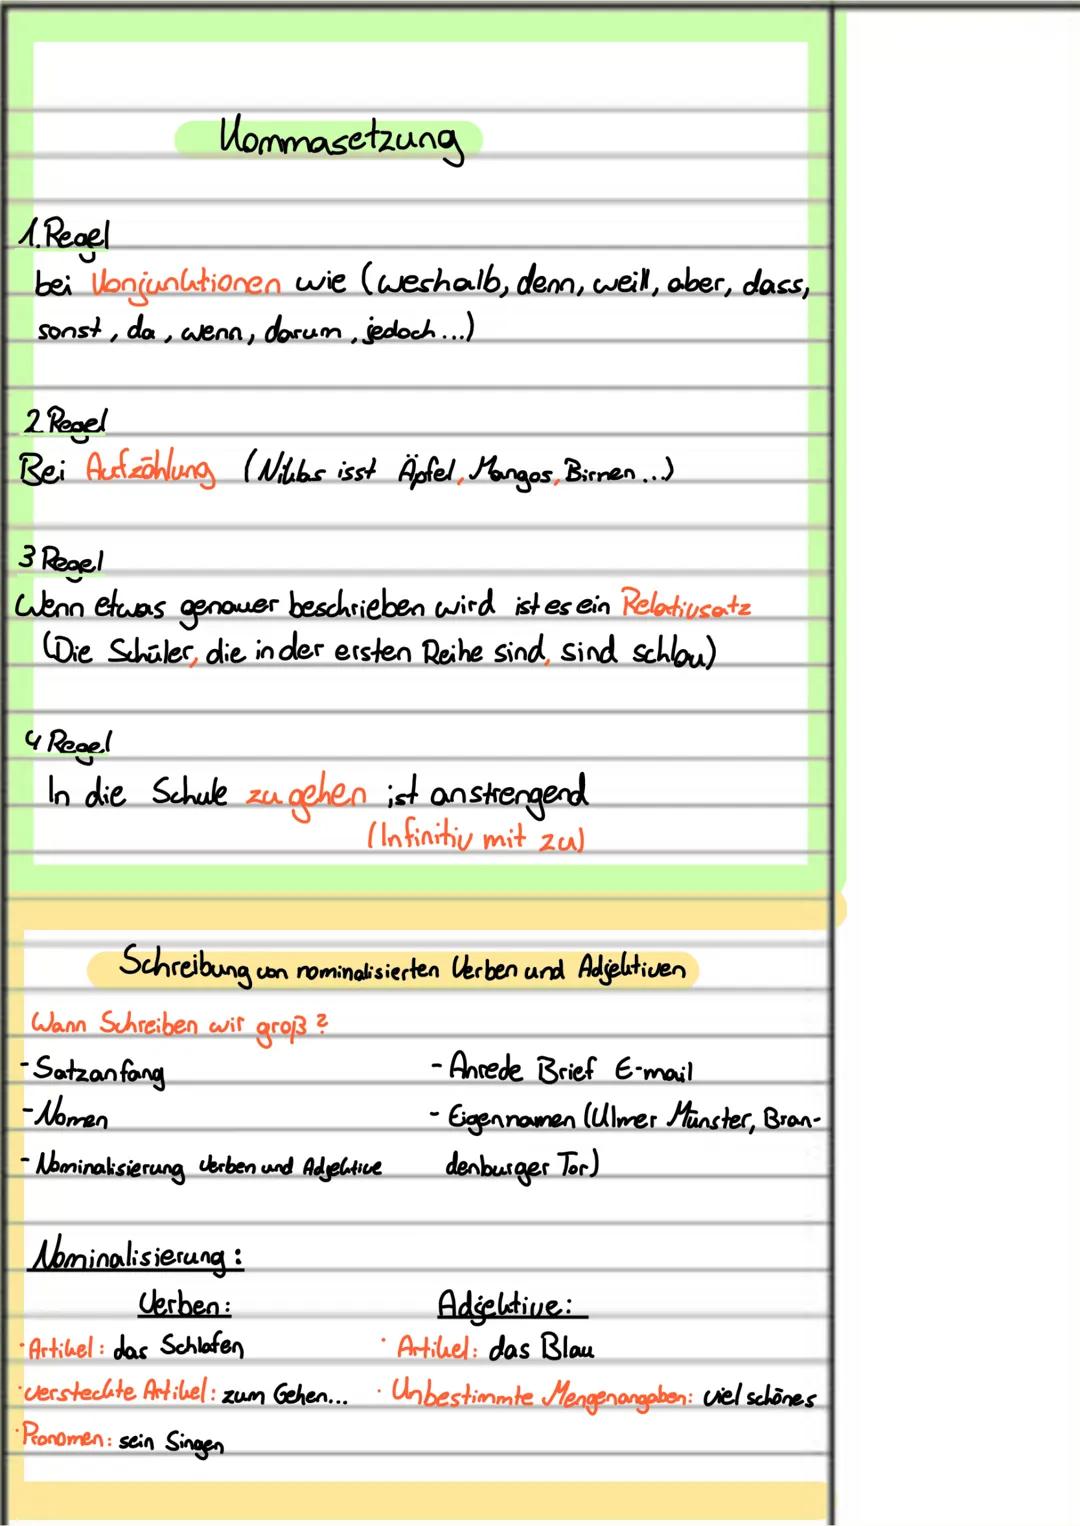 Kommasetzung
1. Regel
bei Konjunktionen wie (weshalb, denn, weill, aber, dass,
sonst, da, wenn, darum, jedoch...)
2. Regel
Bei Aufzählung (Niklas isst Äpfel, Mangos, Birnen...)
3 Regel
Wenn etwas genauer beschrieben wird ist es ein Relativsatz
(Die Schüler, die in der ersten Reihe sind, sind schlau)
4 Regel
In die Schule zu gehen ist anstrengend
(Infinitiv mit zu)
Schreibung von nominalisierten Verben und Adjektiven
Wann Schreiben wir groß?
- Satzanfang
- Nomen
- Nominalisierung Verben und Adjektive
- Anrede Brief E-mail
- Eigennamen (Ulmer Münster, Bran-
denburger Tor)
Nominalisierung:
Verben:
· Artikel: das Schlafen
· versteckte Artikel: zum Gehen...
· Pronomen: sein Singen
Adjektive:
· Artikel: das Blau
· Unbestimmte Mengenangaben: viel schönes